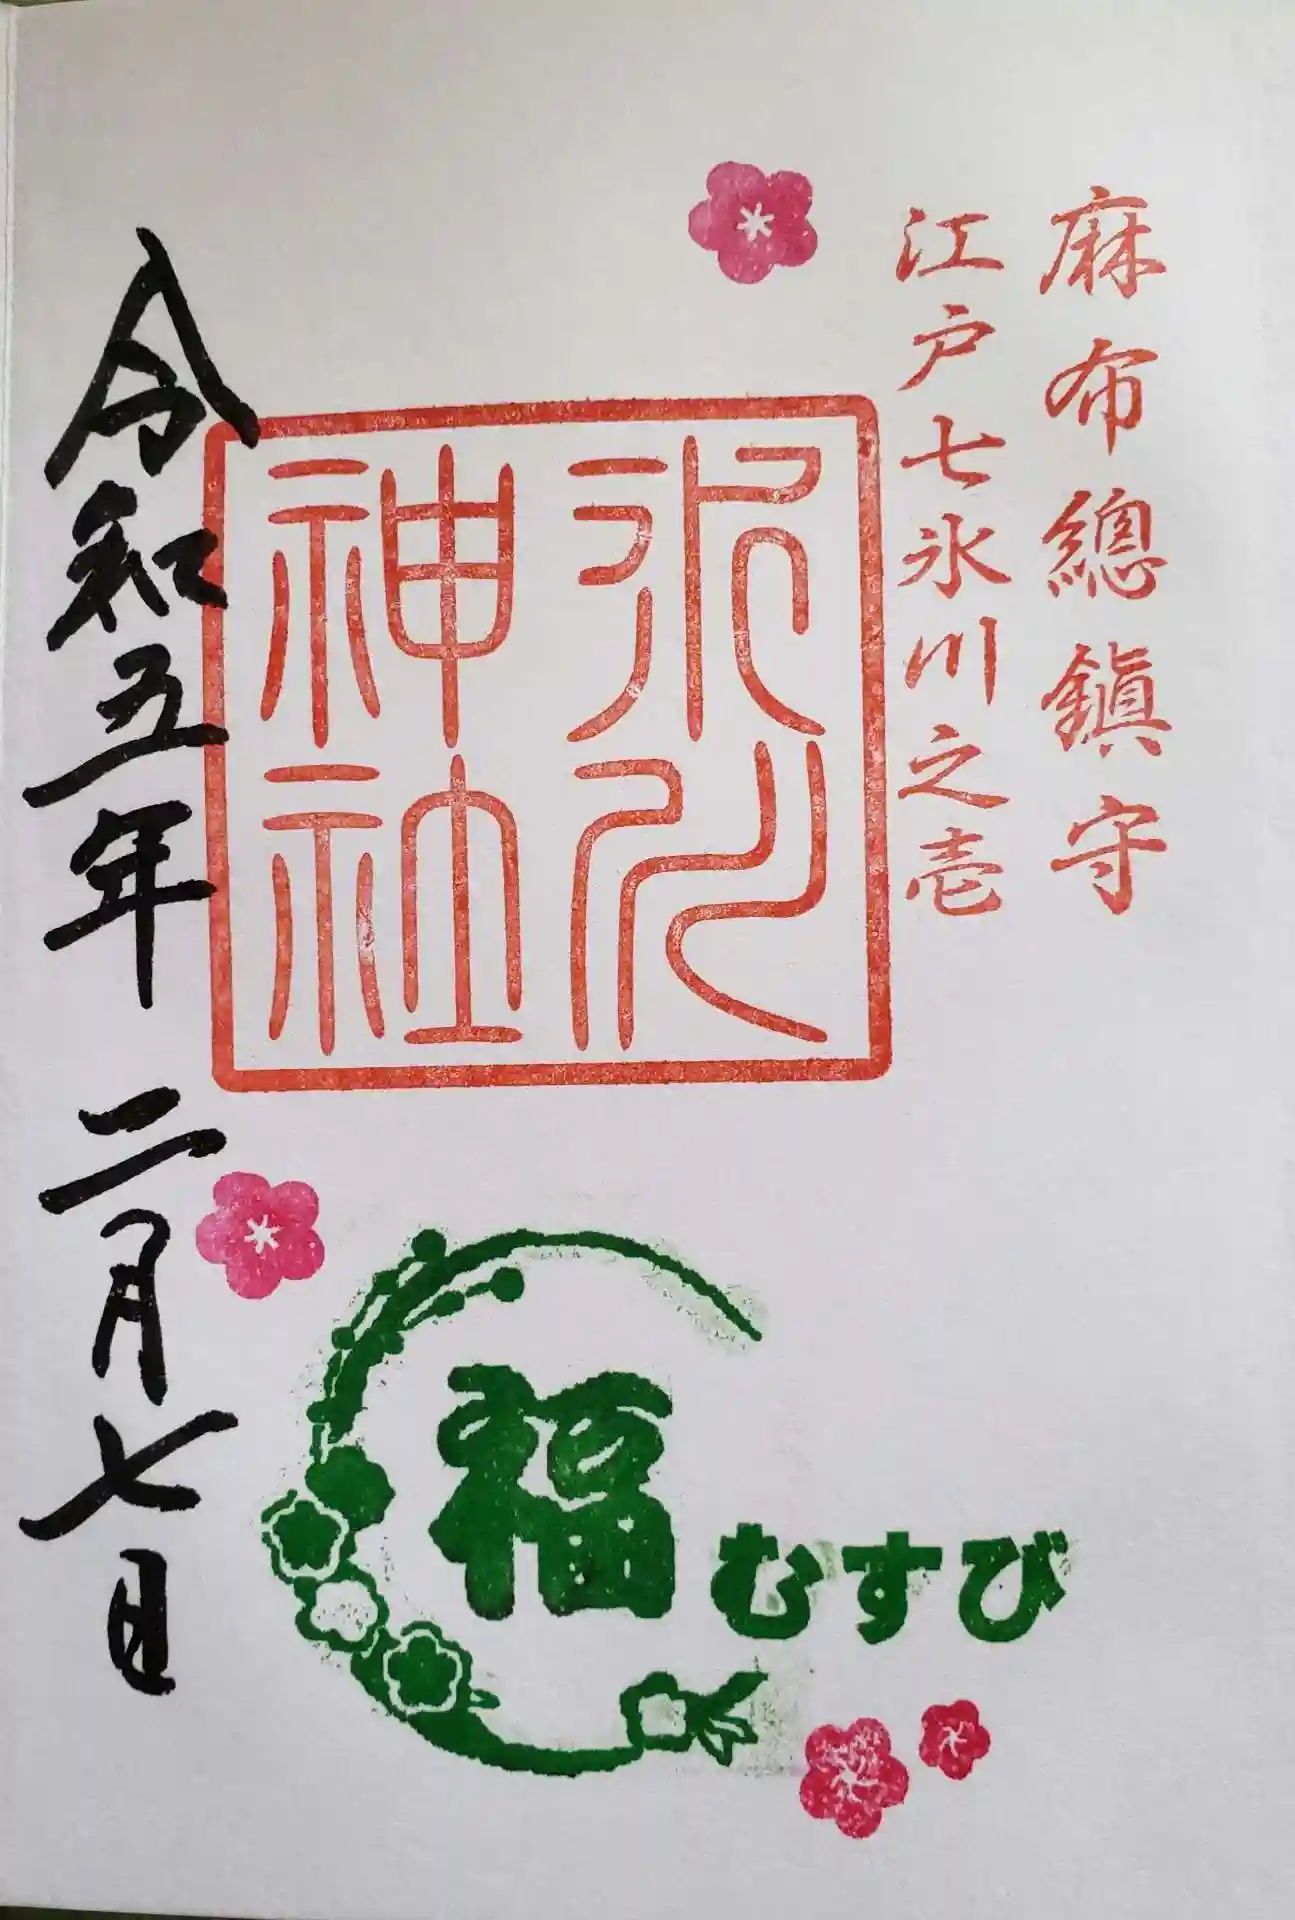 麻布總鎮守
江戸七氷川之壱
氷川
神社
令和五年 二月七日
福むすび